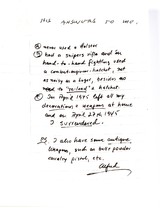 HIS ANSWERS TO ME.
④ never used a Holster
⑤ had a snipers rifle and for
hand-to-hand fighting used
a combat-engineer-hatchet, not
as noisy as a Luger, besides no
need to "re-load" a hatchet.
⑥ In April 1945 left all my
decorations + weapons at home
and on April 27th, 1945
I surrendered.
PS. I also have some antique
weapons, such as
cavalry pistol, etc.
Alfred